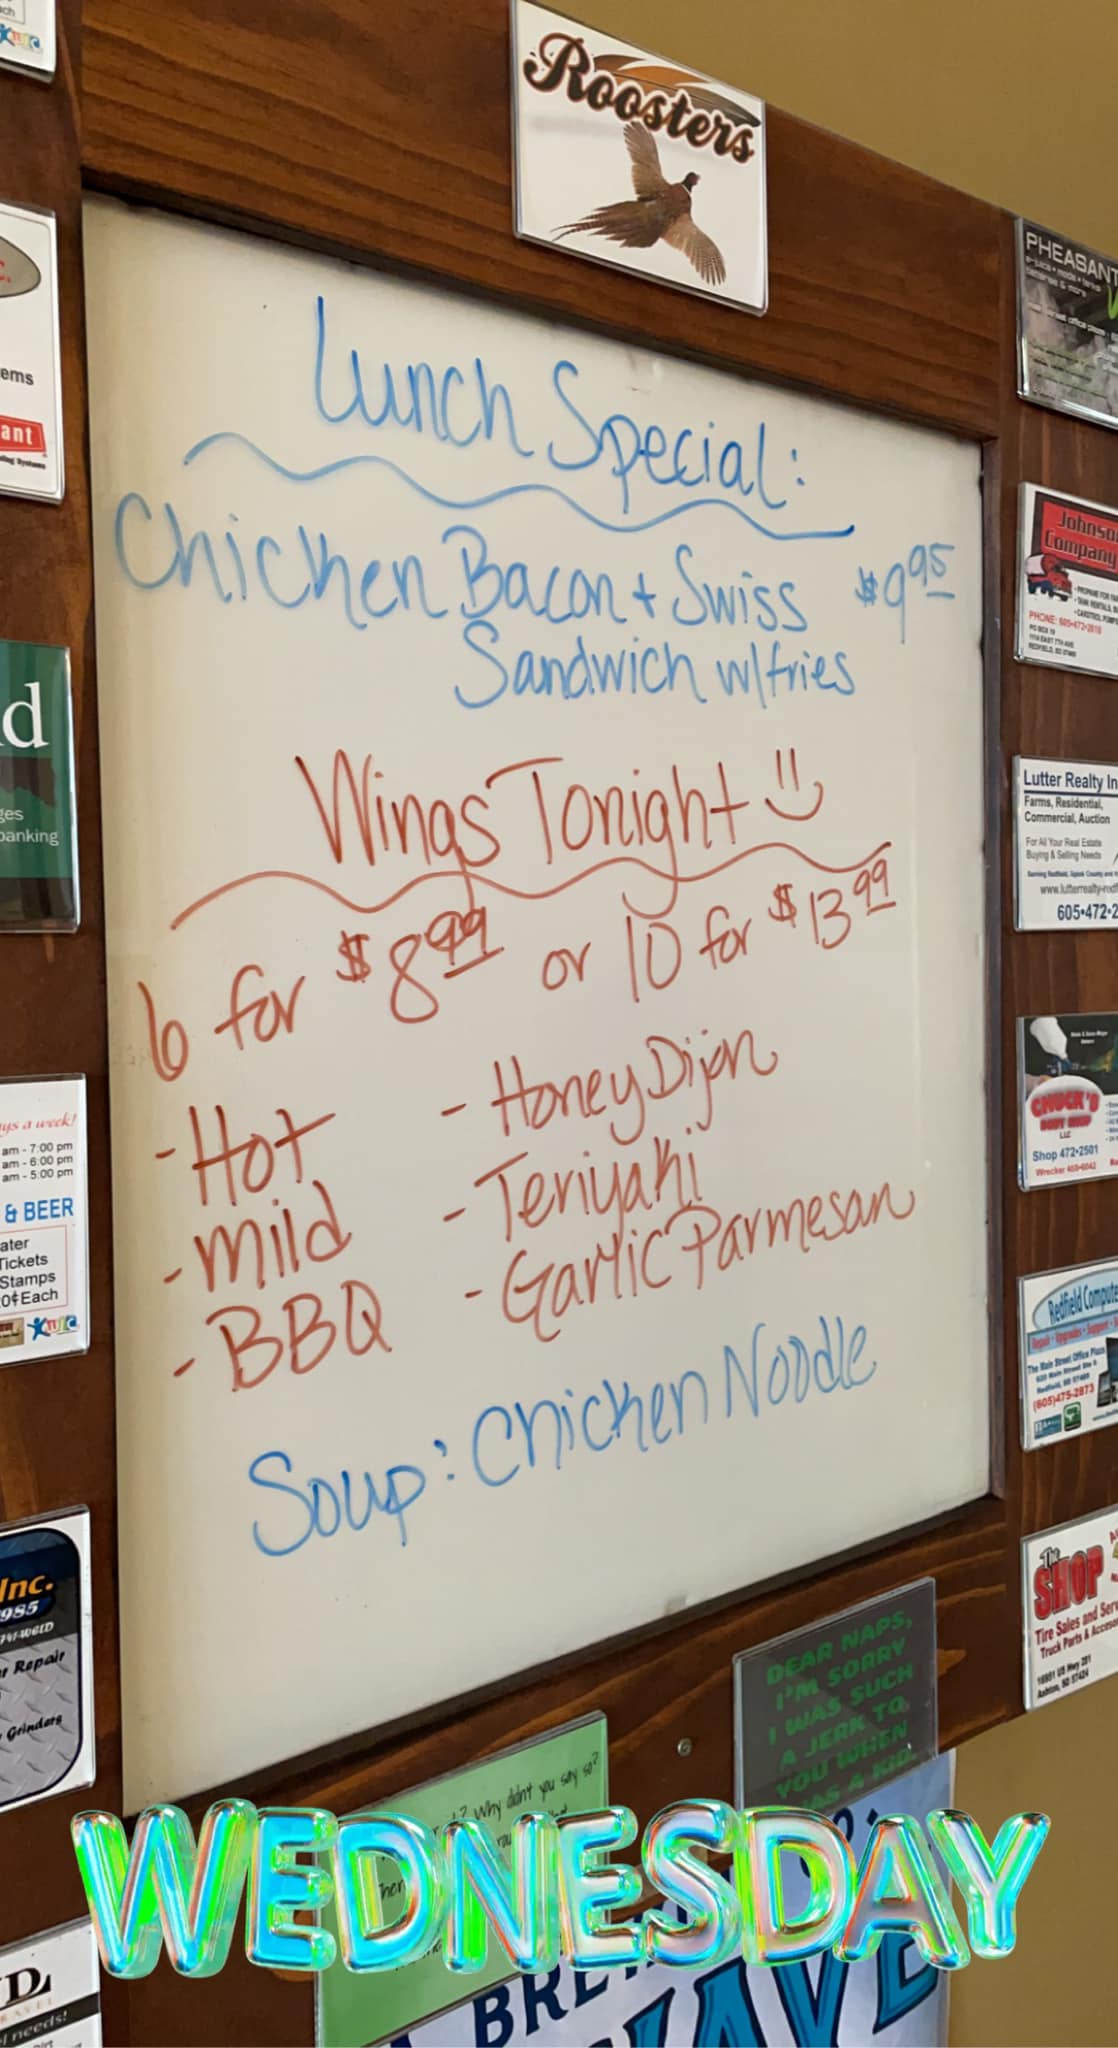 Roosters
Lunch Special:
Chicken Bacon + Swiss $9.95
Sandwich w/fries
Wings Tonight
6 for $8.99 or 10 for $13.99
- Hot
- Mild
- BBQ
- Honey Dijon
- Teriyaki
- Garlic Parmesan
Soup: Chicken Noodle
WEDNESDAY
DEAR NAPS,
I'M SORRY
I WAS SUCH
A JERK TO
YOU WHEN
WAS A KID.
Why didn't you say so?
ems
ant
d
ges
banking
ys a week!
am - 7:00 pm
am - 6:00 pm
am - 5:00 pm
& BEER
ater
Tickets
Stamps
0¢ Each
Inc.
985
r Repair
Grinders
D
RAVEL
l needs!
PHEASANT
Johnso
Company
PHONE: 605-472-2610
PO BOX 19
1114 EAST 7TH AVE
REDFIELD, SD 57469
Lutter Realty In
Farms, Residential,
Commercial, Auction
For All Your Real Estate
Buying & Selling Needs
www.lutterrealty-redf
605•472•2
CHUCK'S
BODY SHOP
LLC
Shop 472•2501
Redfield Compute
The Main Street Office Plaza
(605)475-2873
The
SHOP
Tire Sales and Serv
Truck Parts & Accesso
Ashton, SD 57424
BRE
WAVE